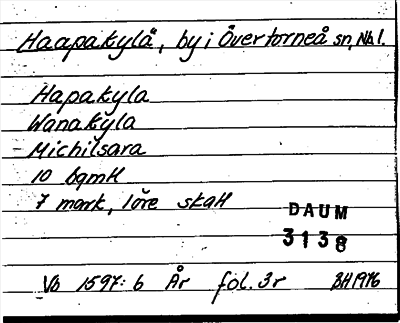 Haapakylä, by i Övertorneå sn, Nbl.
Hapakyla
Wanakyla
Michilsara
10 bgmH
7 mark, 1 öre skatt
DAUM
3138
Vb 1597:6 År fol. 3r BH1976